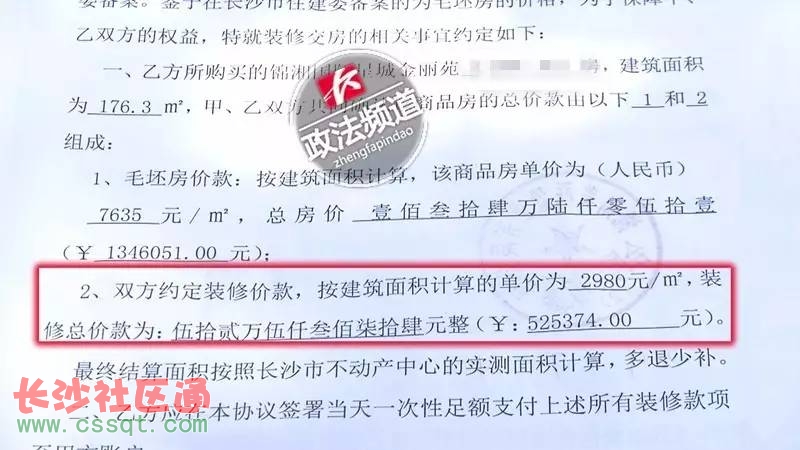 委备案。鉴于在长沙市住建委备案的为毛坯房的价格，为了保障甲、
乙双方的权益，特就装修交房的相关事宜约定如下：
一、乙方所购买的锦湘国际星城金丽苑 房，建筑面积
为 176.3 ㎡，甲、乙双方共同确 商品房的总价款由以下 1 和 2
组成：
1、毛坯房价款：按建筑面积计算，该商品房单价为（人民币）
7635 元/㎡，总房价 壹佰叁拾肆万陆仟零伍拾壹
（￥ 1346051.00 元）；
2、双方约定装修价款，按建筑面积计算的单价为 2980元/㎡，装
修总价款为：伍拾贰万伍仟叁佰柒拾肆元整（￥：525374.00 元）。
最终结算面积按照长沙市不动产中心的实测面积计算，多退少补。
二、乙方应在本协议签署当天一次性足额支付上述所有装修款项
至甲方账户
政法频道
zhengfapindao
长沙社区通
www.cssqt.com